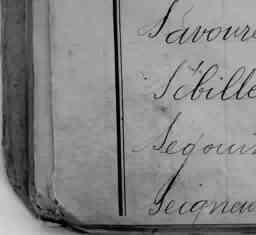 Savoure
Sébille
Segouin
Seigneu